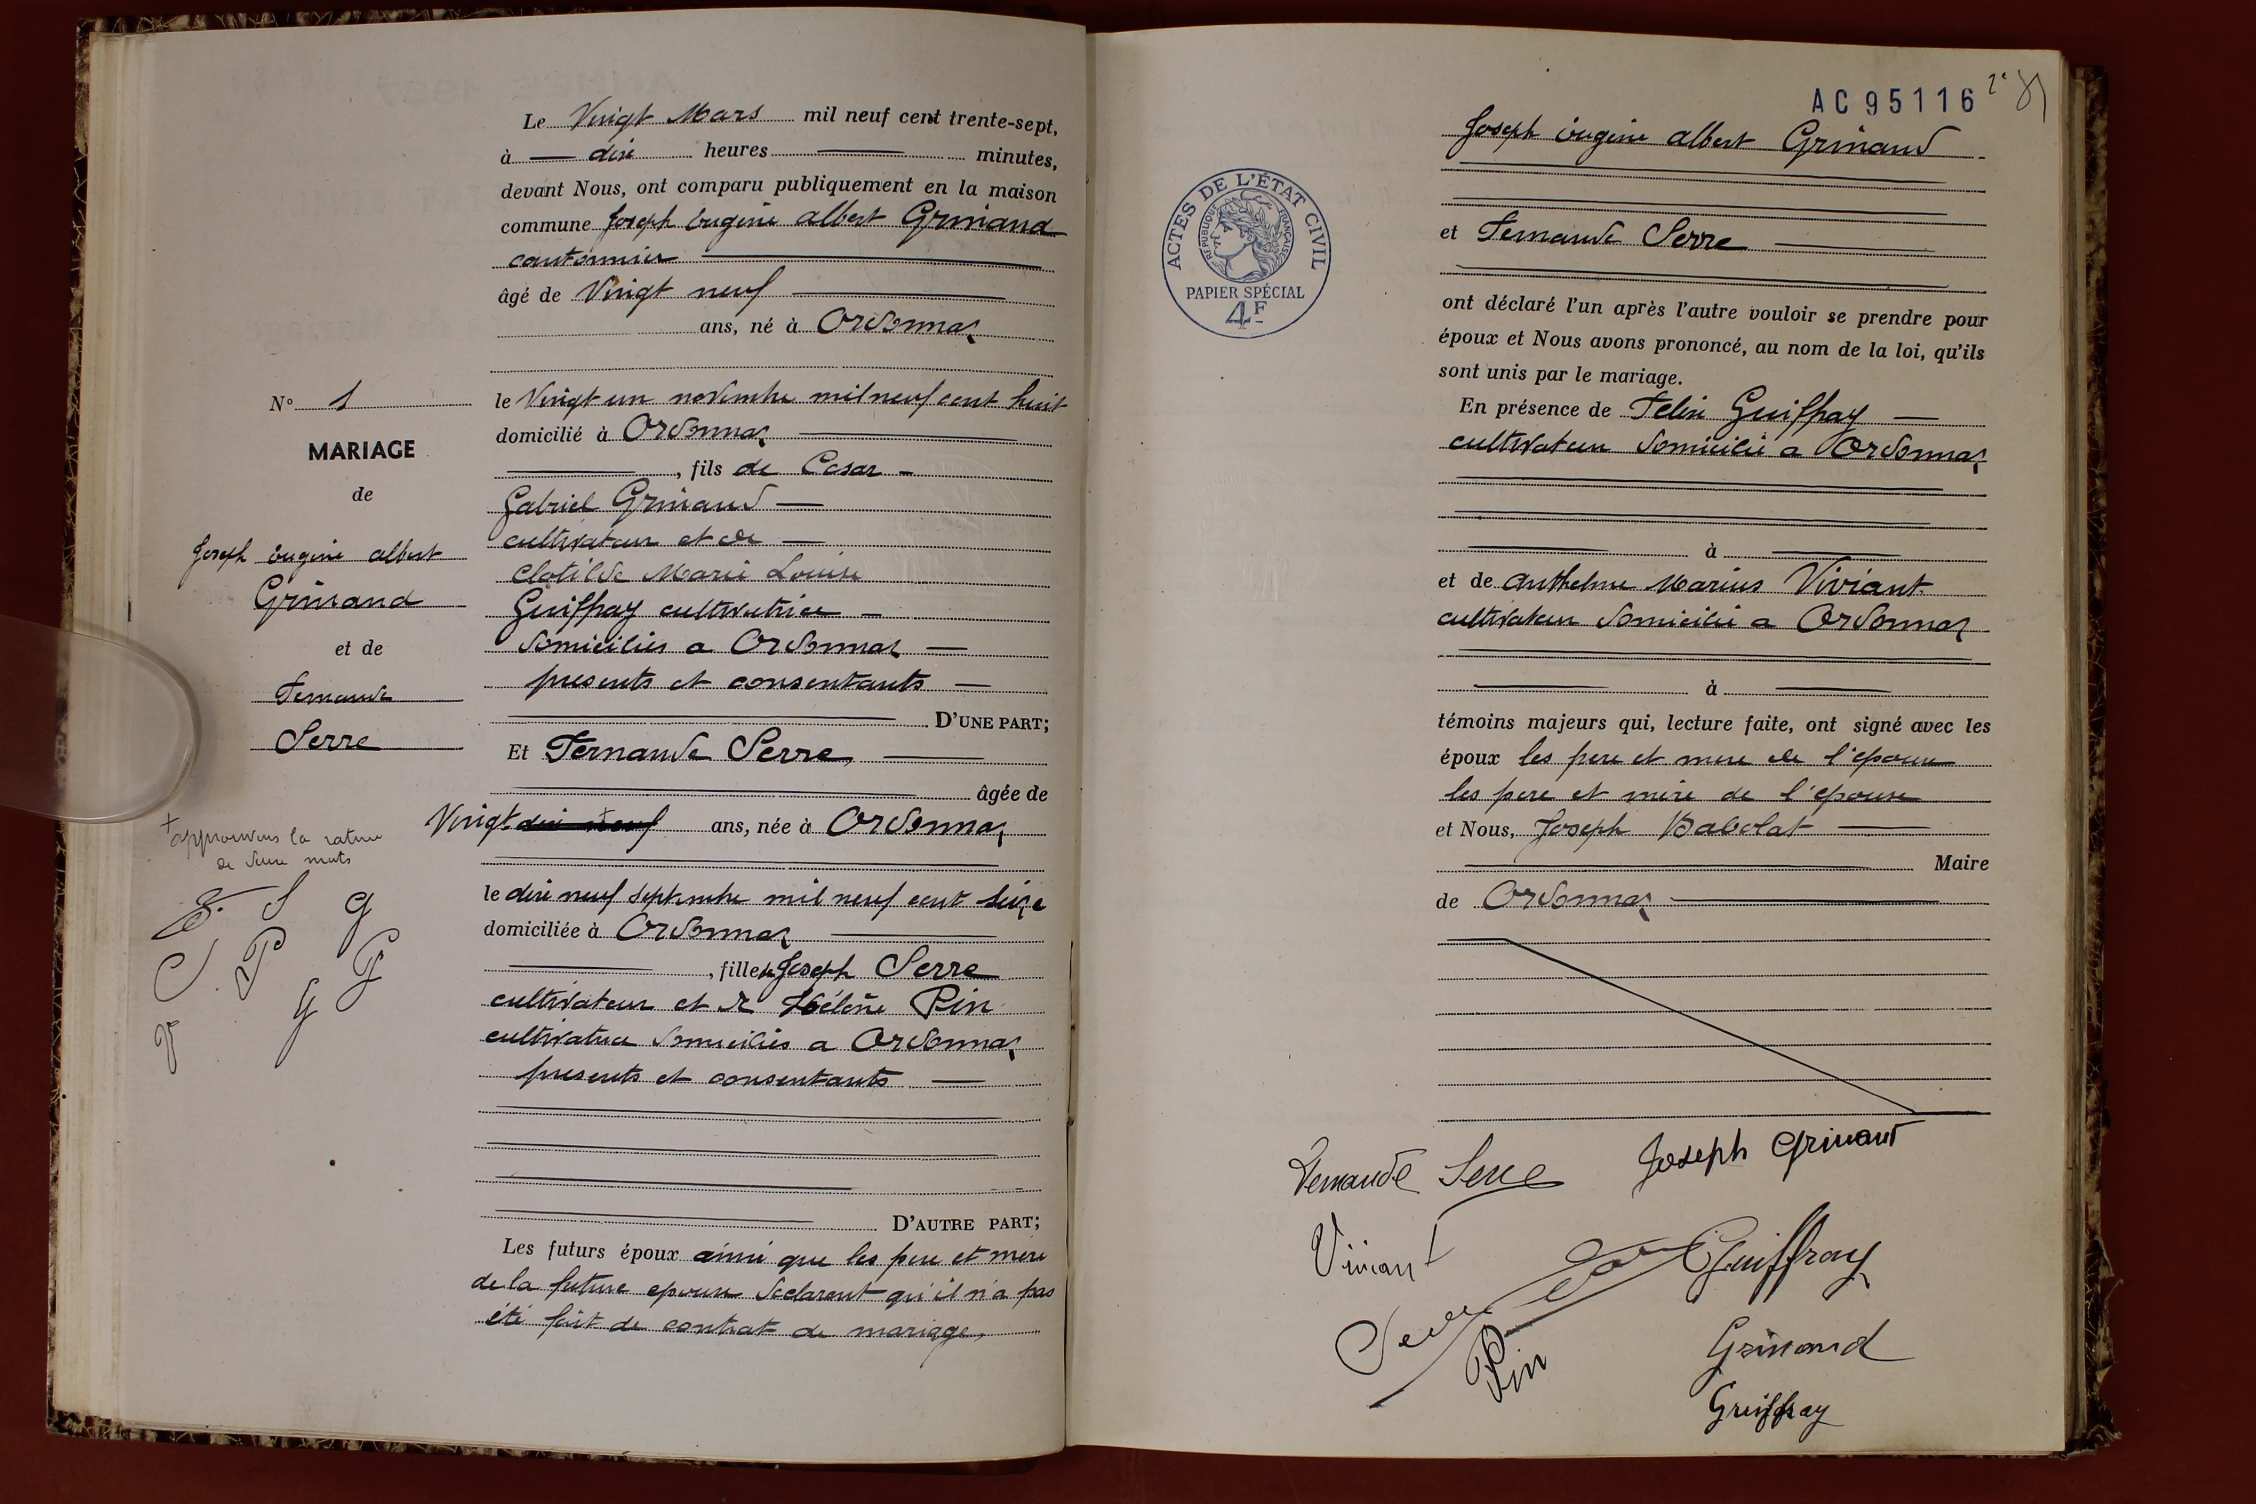 Le Vingt Mars mil neuf cent trente-sept,
à dix heures minutes,
devant Nous, ont comparu publiquement en la maison
commune Joseph Eugène Albert Grinand
cantonnier
âgé de Vingt neuf
ans, né à Ordonnaz
le Vingt un novembre mil neuf cent huit
domicilié à Ordonnaz
, fils de Cesar
Gabriel Grinand
cultivateur et de
Clotilde Marie Louise
Guiffray cultivatrice
domiciliés a Ordonnaz
presents et consentants
D'UNE PART;
Et Fernande Serre
âgée de
Vingt dix neuf ans, née à Ordonnaz
le dix neuf septembre mil neuf cent seize
domiciliée à Ordonnaz
, fille de Joseph Serre
cultivateur et de Hélène Pin
cultivatrice domiciliés a Ordonnaz
presents et consentants
D'AUTRE PART;
Les futurs époux ainsi que les pere et mere
de la future epouse declarent qu'il n'a pas
été fait de contrat de mariage,
N° 1
MARIAGE
de
Joseph Eugène Albert
Grinand
et de
Fernande
Serre
+ approuvons la rature
de deux mots
S G
S P G
V G
AC 95116
2e
Joseph Eugène Albert Grinand
et Fernande Serre
ACTES DE L'ÉTAT CIVIL
RÉPUBLIQUE FRANÇAISE
PAPIER SPÉCIAL
4F
ont déclaré l'un après l'autre vouloir se prendre pour
époux et Nous avons prononcé, au nom de la loi, qu'ils
sont unis par le mariage.
En présence de Felix Guiffray
cultivateur domicilié a Ordonnaz
à
et de Anthelme Marius Viviant
cultivateur domicilié a Ordonnaz
à
témoins majeurs qui, lecture faite, ont signé avec les
époux les pere et mere de l'epoux
les pere et mère de l'epouse
et Nous, Joseph Babolat
Maire
de Ordonnaz
Fernande Serre Joseph Grinand
Viviant Guiffray
Serre
Pin Grinand
Guiffray